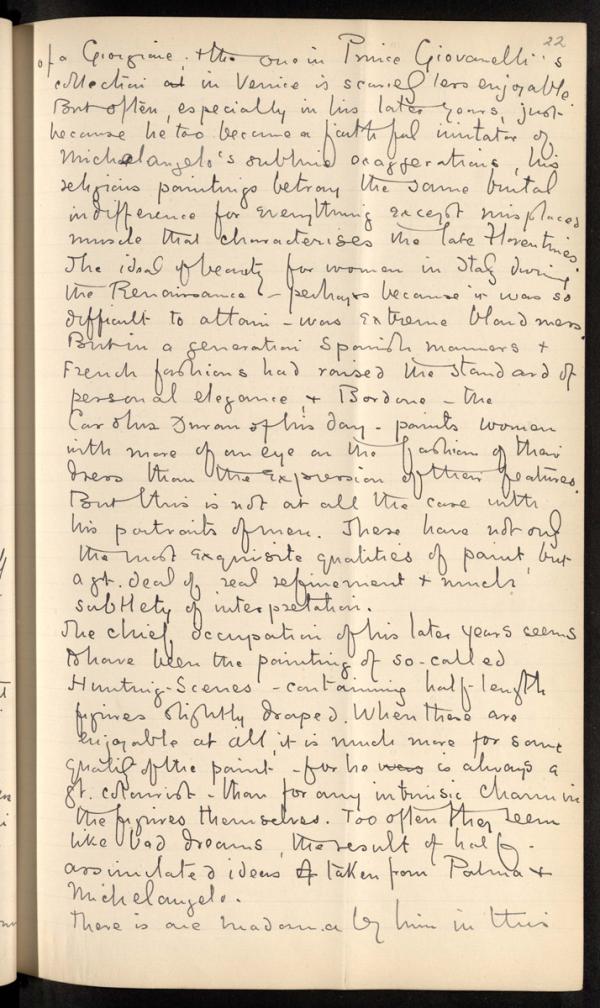 22
of a Giorgione, & the one in Prince Giovanelli's
collection at in Venice is scarcely less enjoyable
But often, especially in his later years, just
because he too became a faithful imitator of
Michelangelo's sublime exaggerations, his
religious paintings betray the same brutal
indifference for everything except misplaced
muscle that characterises the late Florentines.
The ideal of beauty for women in Italy during
the Renaissance - perhaps because it was so
difficult to attain - was extreme blandness.
But in a generation Spanish manners &
French fashions had raised the standard of
personal elegance, & Bordone - the
Carolus Duran of his day - paints women
with more of an eye on the fashion of their
dress than the expression of their features.
But this is not at all the case with
his portraits of men. These have not only
the most exquisite qualities of paint, but
a gt. deal of real refinement & much
subtlety of interpretation.
The chief occupation of his later years seems
to have been the painting of so-called
Hunting-Scenes - containing half-length
figures slightly draped. When these are
enjoyable at all, it is much more for some
quality of the paint - for he was is always a
gt. colourist - than for any intrinsic charm in
the figures themselves. Too often they seem
like bad dreams, the result of half-
assimilated ideas taken from Palma &
Michelangelo.
There is one madonna by him in this